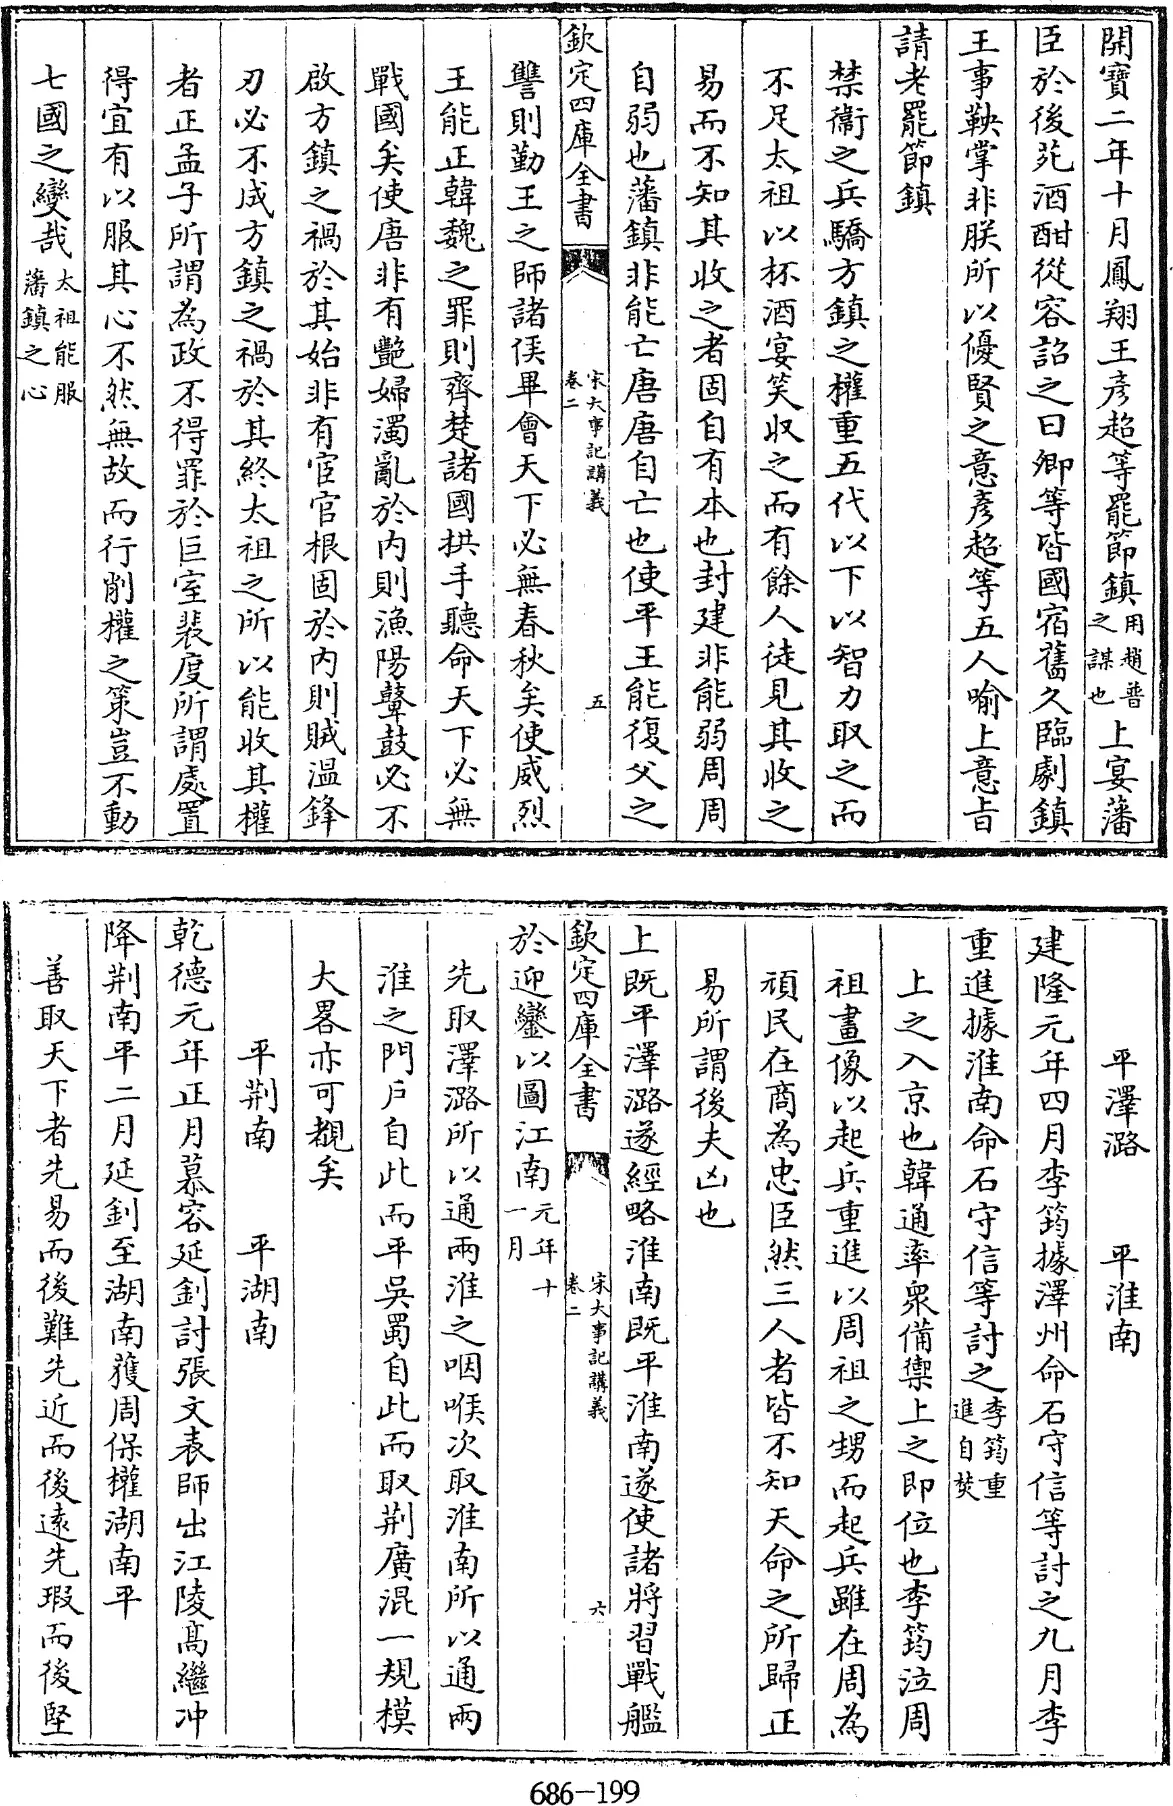 開寳二年十月鳳翔王彦超等罷節鎮用趙普之謀也上宴藩
臣於後苑酒酣從容詔之曰卿等皆國宿舊久臨劇鎮
王事鞅掌非朕所以優賢之意彦超等五人喻上意㫖
請老罷節鎮
禁衛之兵驕方鎮之權重五代以下以智力取之而
不足太祖以杯酒宴笑收之而有餘人徒見其收之
易而不知其收之者固自有本也封建非能弱周周
自弱也藩鎮非能亡唐唐自亡也使平王能復父之
欽定四庫全書
宋大事記講義
卷二
五
讐則勤王之師諸侯畢會天下必無春秋矣使威烈
王能正韓魏之罪則齊楚諸國拱手聽命天下必無
戰國矣使唐非有艷婦濁亂於内則漁陽鼙鼓必不
啟方鎮之禍於其始非有宦官根固於内則賊温鋒
刃必不成方鎮之禍於其終太祖之所以能收其權
者正孟子所謂為政不得罪於巨室裴度所謂處置
得宜有以服其心不然無故而行削權之策豈不動
七國之變哉太祖能服藩鎮之心
平澤潞　平淮南
建隆元年四月李筠據澤州命石守信等討之九月李
重進據淮南命石守信等討之李筠重進自焚
上之入京也韓通率衆備禦上之即位也李筠泣周
祖畫像以起兵重進以周祖之甥而起兵雖在周為
頑民在商為忠臣然三人者皆不知天命之所歸正
易所謂後夫凶也
上既平澤潞遂經略淮南既平淮南遂使諸將習戰艦
欽定四庫全書
宋大事記講義
卷二
六
於迎鑾以圖江南元年十一月
先取澤潞所以通兩淮之咽喉次取淮南所以通兩
淮之門戶自此而平吳蜀自此而取荆廣混一規模
大畧亦可覩矣
平荆南　平湖南
乾德元年正月慕容延釗討張文表師出江陵髙繼冲
降荆南平二月延釗至湖南獲周保權湖南平
善取天下者先易而後難先近而後遠先瑕而後堅
686-199